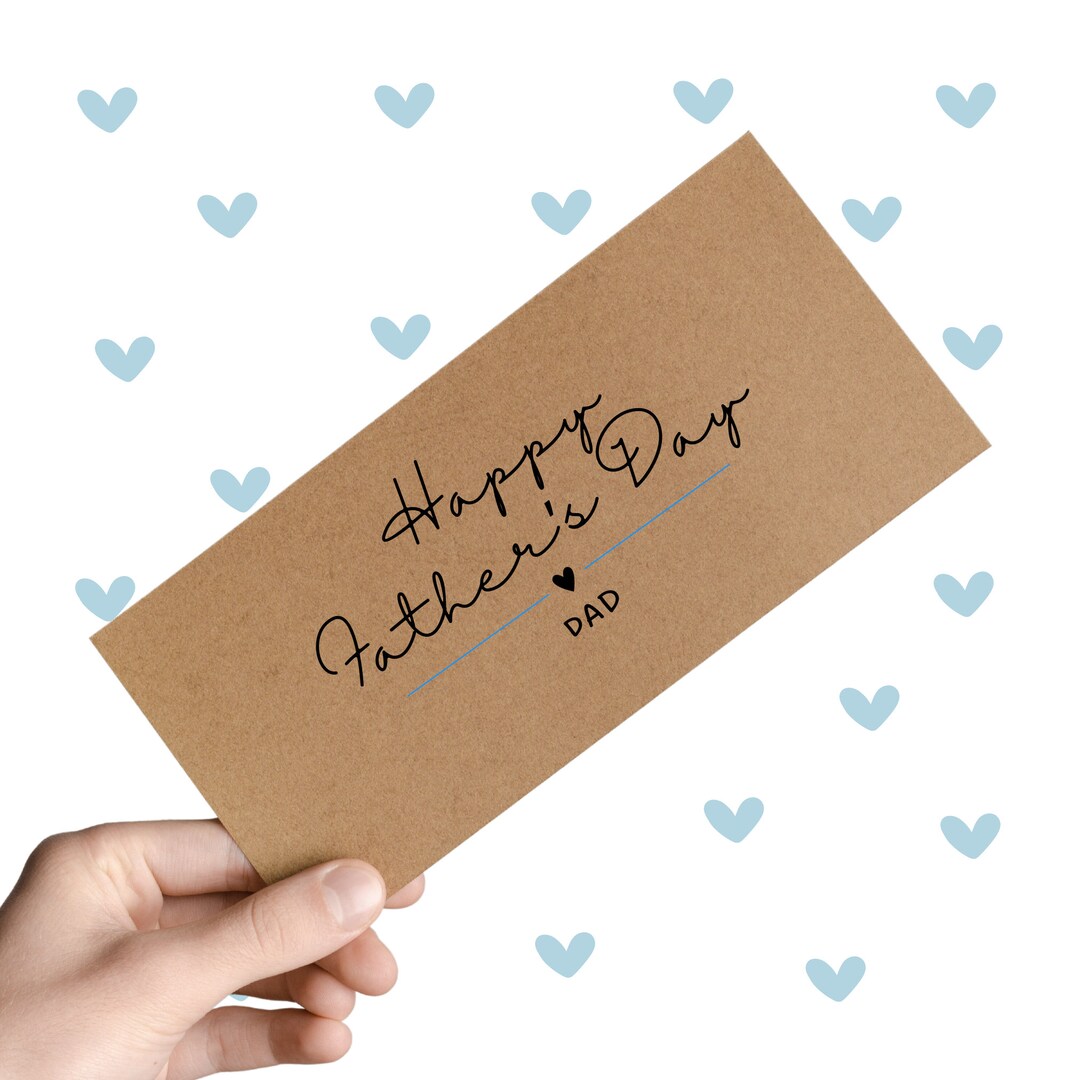 Happy
Father's Day
DAD